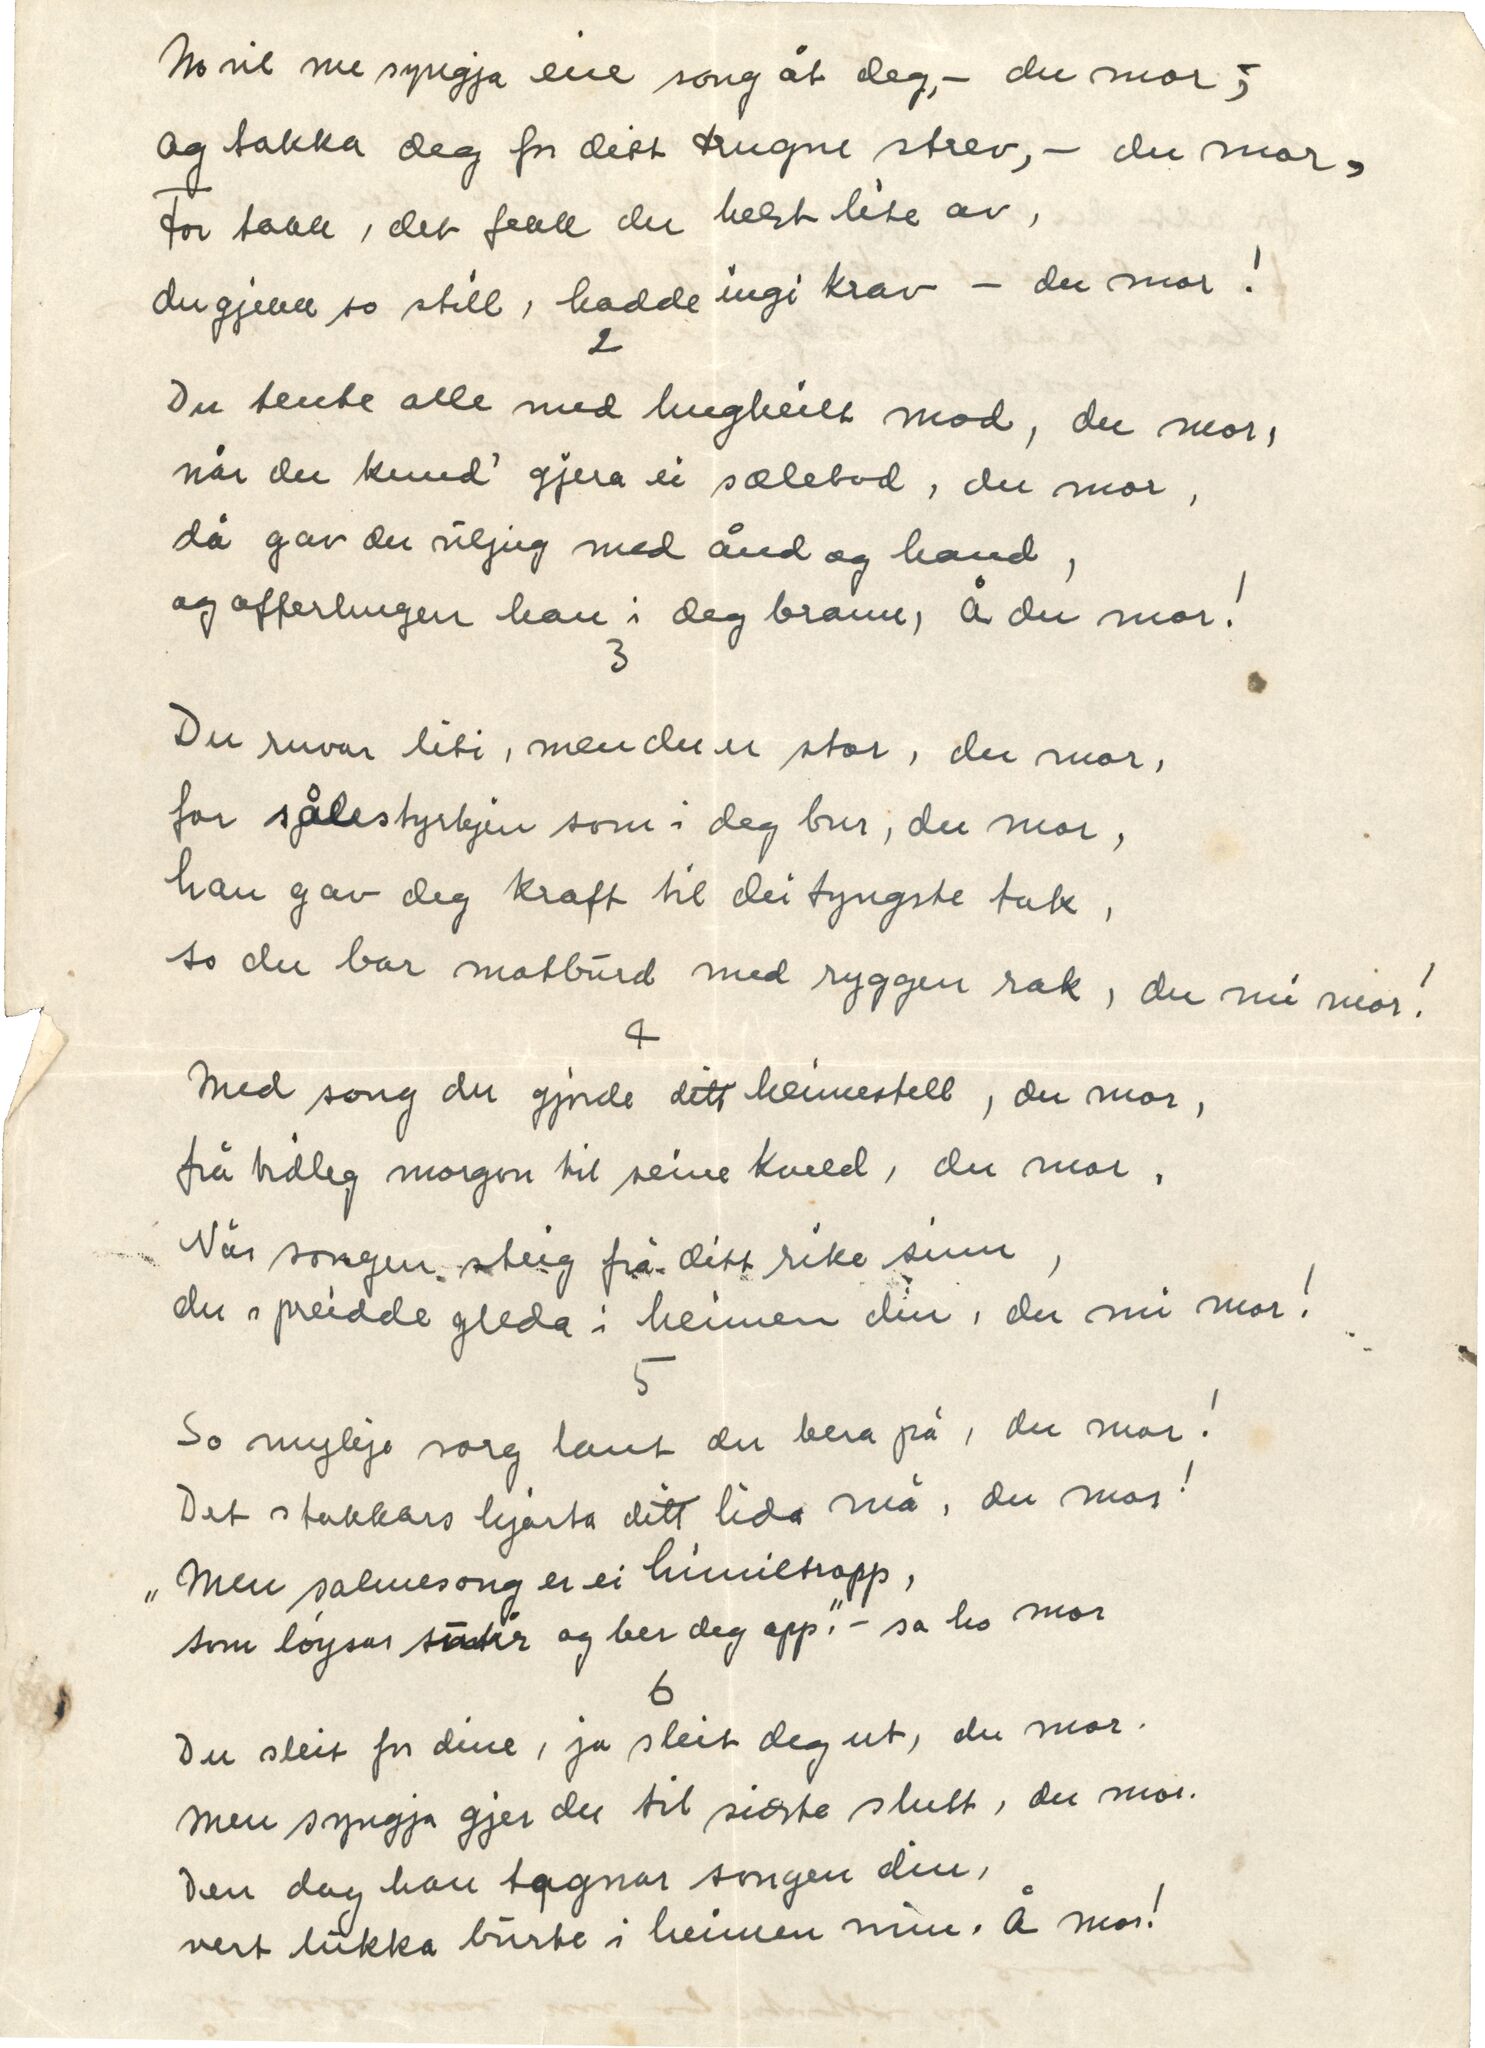 No vil me syngja eine song åt deg, – du mor,
og takka deg for ditt trugne strev, – du mor,
For takk, det fekk du helst lite av,
du gjekk so still, hadde ingi krav – du mor!
2
Du tente alle med hugheilt mod, du mor,
når du kund' gjera ei sælebod, du mor,
då gav du viljug med ånd og hand,
og offerhugen han i deg brann, Å du mor!
3
Du ruvar liti, men du er stor, du mor,
for sålestyrkjen som i deg bur, du mor,
han gav deg kraft til dei tyngste tak,
so du bar motburd med ryggen rak, du mi mor!
4
Med song du gjorde ditt heimestell, du mor,
frå tidleg morgon til seine kveld, du mor.
Når songen steig frå ditt rike sinn,
du spreidde gleda i heimen din, du mi mor!
5
So mykje sorg laut du bera på, du mor!
Det stakkars hjarta ditt lida må, du mor!
„Men salmesong er ei himiltrapp,
som løysar and og ber deg opp." – sa ho mor
6
Du sleit for dine, ja sleit deg ut, du mor.
Men syngja gjer du til siste slutt, du mor.
Den dag han tagnar songen din,
vert lukka burte i heimen min. Å mor!